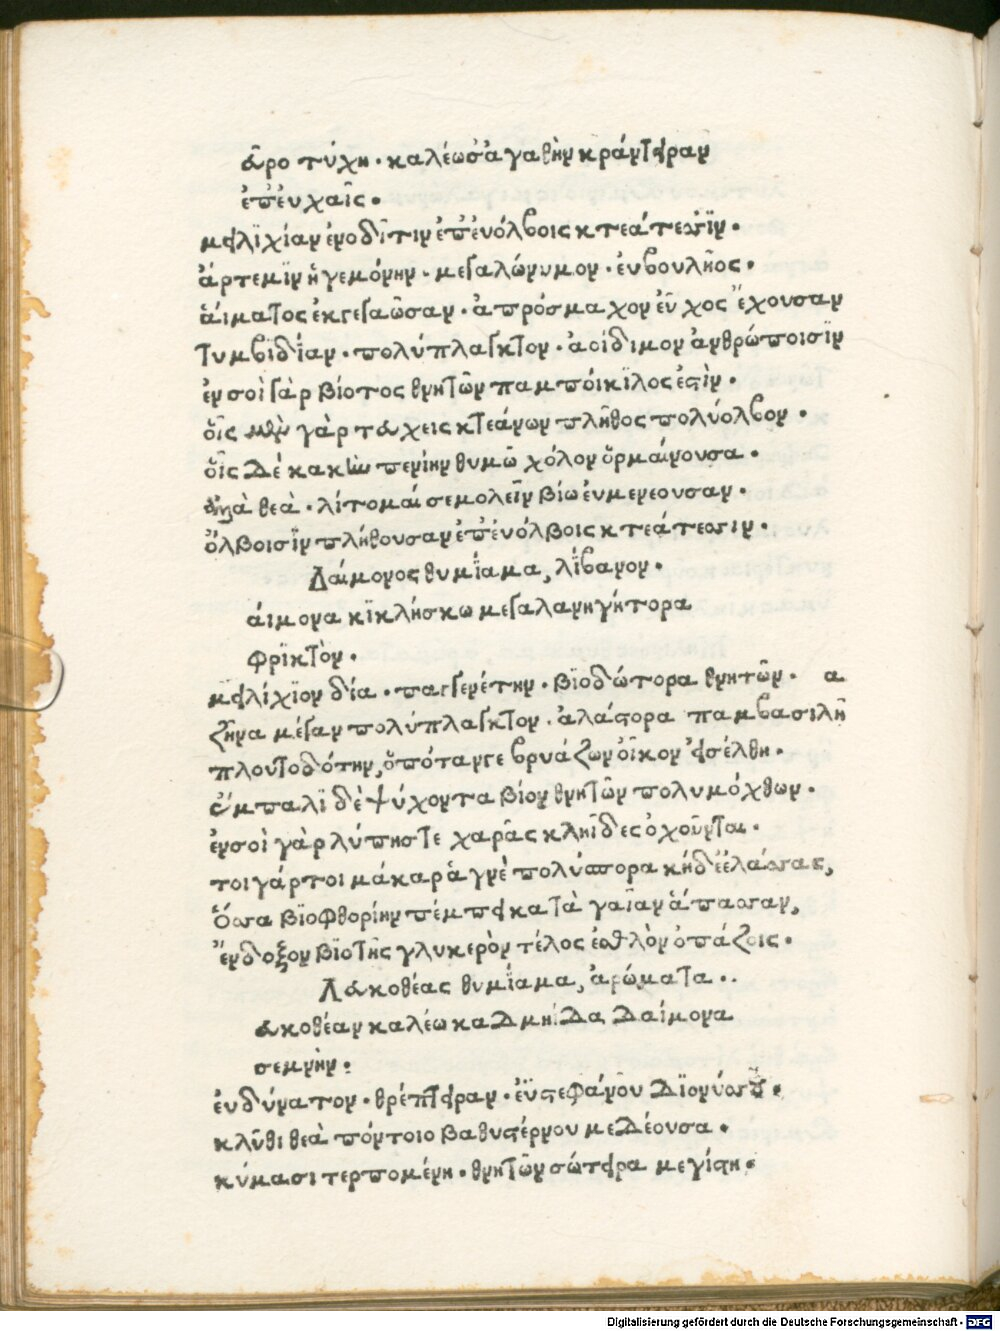 εῦρο τύχη. καλέω σ' ἀγαθὴν κράντειραν
ἐπ' ἐυχαῖς.
μειλϊχίαν ἐνοδῖτιν ἐπ' ἐυόλβοις κτεάτεσϊν.
ἄρτεμϊν ἡγεμόνην. μεγαλώνυμον. ἐυβουλῆος.
ἁίματος ἐκγεγαῶσαν. ἀπρόσμαχον ἐῦχος ἔχουσαν
τυμβϊδΐαν. πολύπλαγκτον. ἀοίδιμον ἀνθρώποισϊν
ἐν σοὶ γὰρ βίοτος θνητῶν παμπόικϊλος ἐστὶν.
ὅις μὲν γὰρ τεύχεις κτεάνων πλῆθος πολύολβον.
ὅις δέ κακὴν πενίην θυμῶ χόλον ὅρμάινουσα.
ἀλλὰ θεὰ. λίτομαί σε μολεῖν βίω ἐυμενεουσαν.
ὄλβοισϊν πλήθουσαν ἐπ' ἐυόλβοις κτεάτεσιν.
Δάιμονος θυμΐαμα, λΐβανον.
άιμονα κϊκλήσκω μεγαλανηγήτορα
φρϊκτὸν.
μειλίχϊον δία. παγγενέτην. βϊοδώτορα θνητῶν. α
ζῆνα μέγαν πολύπλαγκτον. ἀλάστορα παμβασιλῆ
πλουτοδότην, ὅπόταν γε βρυάζων ὅικον ἐισέλθη.
ἔμπαλϊ δὲ ψύχοντα βίον θνητῶν πολυμόχθων.
ἐν σοὶ γὰρ λύπης τε χαρᾶς κληῖδες ὀχοῦνται.
τοιγάρτοι μάκαρ ἁγνὲ πολύστορα κήδε' ἐλάσσας,
ὅσσα βϊοφθορίην πέμπει κατὰ γαῖαν ἅπασαν,
ἔνδοξον βϊοτῆς γλυκερὸν τέλος ἐσθλὸν ὀπάζοις.
Λευκοθέας θυμΐαμα, ἀρώματα..
ευκοθέαν καλέω καδμηίδα δαίμονα
σεμνὴν.
ἐυδύνατον. θρέπτειραν. ἐϋστεφάνου διονύσου.
κλῦθι θεὰ πόντοιο βαθυστέρνου μεδέουσα.
κύμασι τερπομένη. θνητῶν σώτειρα μεγίστη.
Digitalisierung gefördert durch die Deutsche Forschungsgemeinschaft - DFG